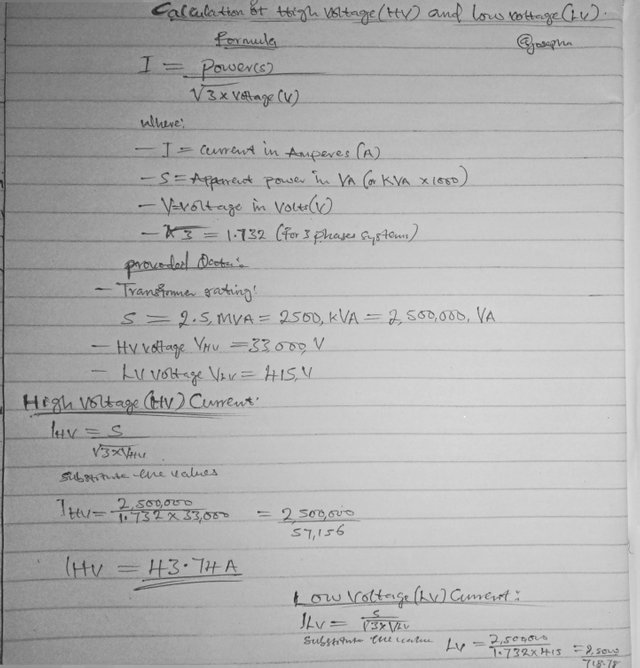 Calculation of High Voltage (HV) and Low Voltage (LV).
Formula
@josepha
I = Power(s)
√3 x Voltage (V)
where:
- I = current in Amperes (A)
- S = Apparent power in VA (or KVA x 1000)
- V = voltage in Volts (V)
- √3 = 1.732 (for 3 phases system)
provided Data:
- Transformer rating:
S = 2.5, MVA = 2500, KVA = 2,500,000, VA
- HV voltage VHV = 33000, V
- LV voltage VLV = 415, V
High Voltage (HV) Current:
IHV = S
√3 x VHV
Substitute the values
IHV = 2,500,000 / 1.732 x 33,000 = 2 500,000 / 57,156
IHV = 43.74 A
Low Voltage (LV) Current:
ILV = S / √3 x VLV
Substitute the value
LV = 2,500,000 / 1.732 x 415